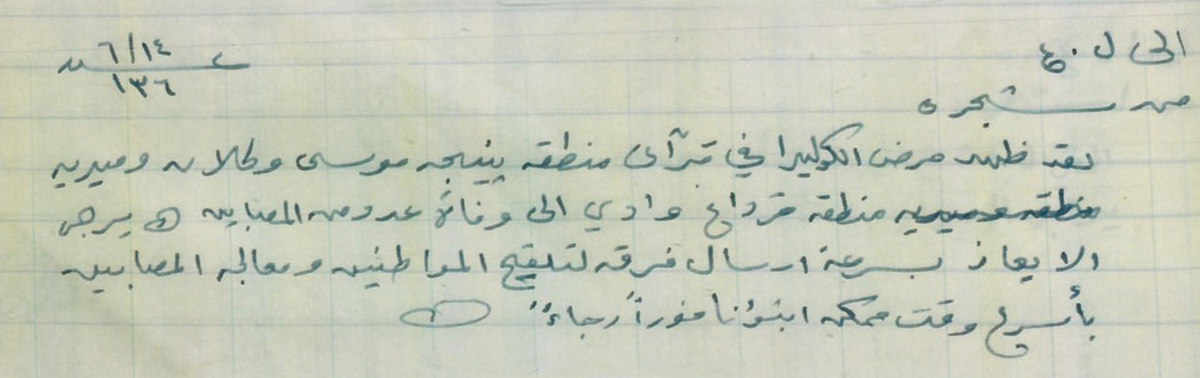 الى ل . ع
٦/١٤
١٣٦
من شجره
لقد ظهر مرض الكوليرا في قرآى منطقه پێنجه موسى وكلاره وميريه
منطقه قرداغ وادي الى وفاة عدد من المصابين (ه) يرجى
الايعاز بسرعة ارسال فرقه لتلقيح المواطنين ومعالجه المصابين
بأسرع وقت ممكن ابنؤنا فوراً رجاءً